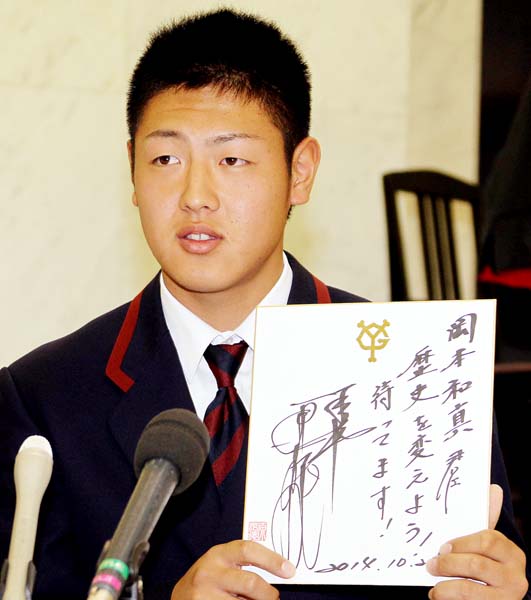 岡本和真君江
歴史を変えよう!
待ってます!
2014.10.2